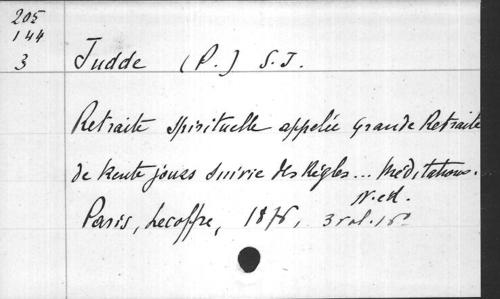 205
144
3 Judde (P.) S.J.
Retraite spirituelle appelée Grande Retraite
de trente jours suivie des Règles... Méditations.
N. éd.
Paris, Lecoffre, 1876, 3 vol. 16º